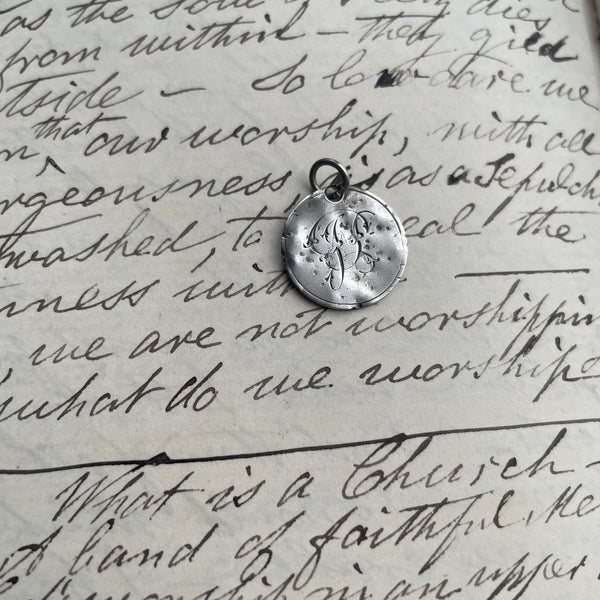 as the soul
from within - they gild
tside - So low dare we
n, that our worship, with all
rgeousness is as a Sepulch
washed, to eal the
nness with
, we are not worshippin
what do we worship
What is a Church -
A band of faithful Me
worship in an upper